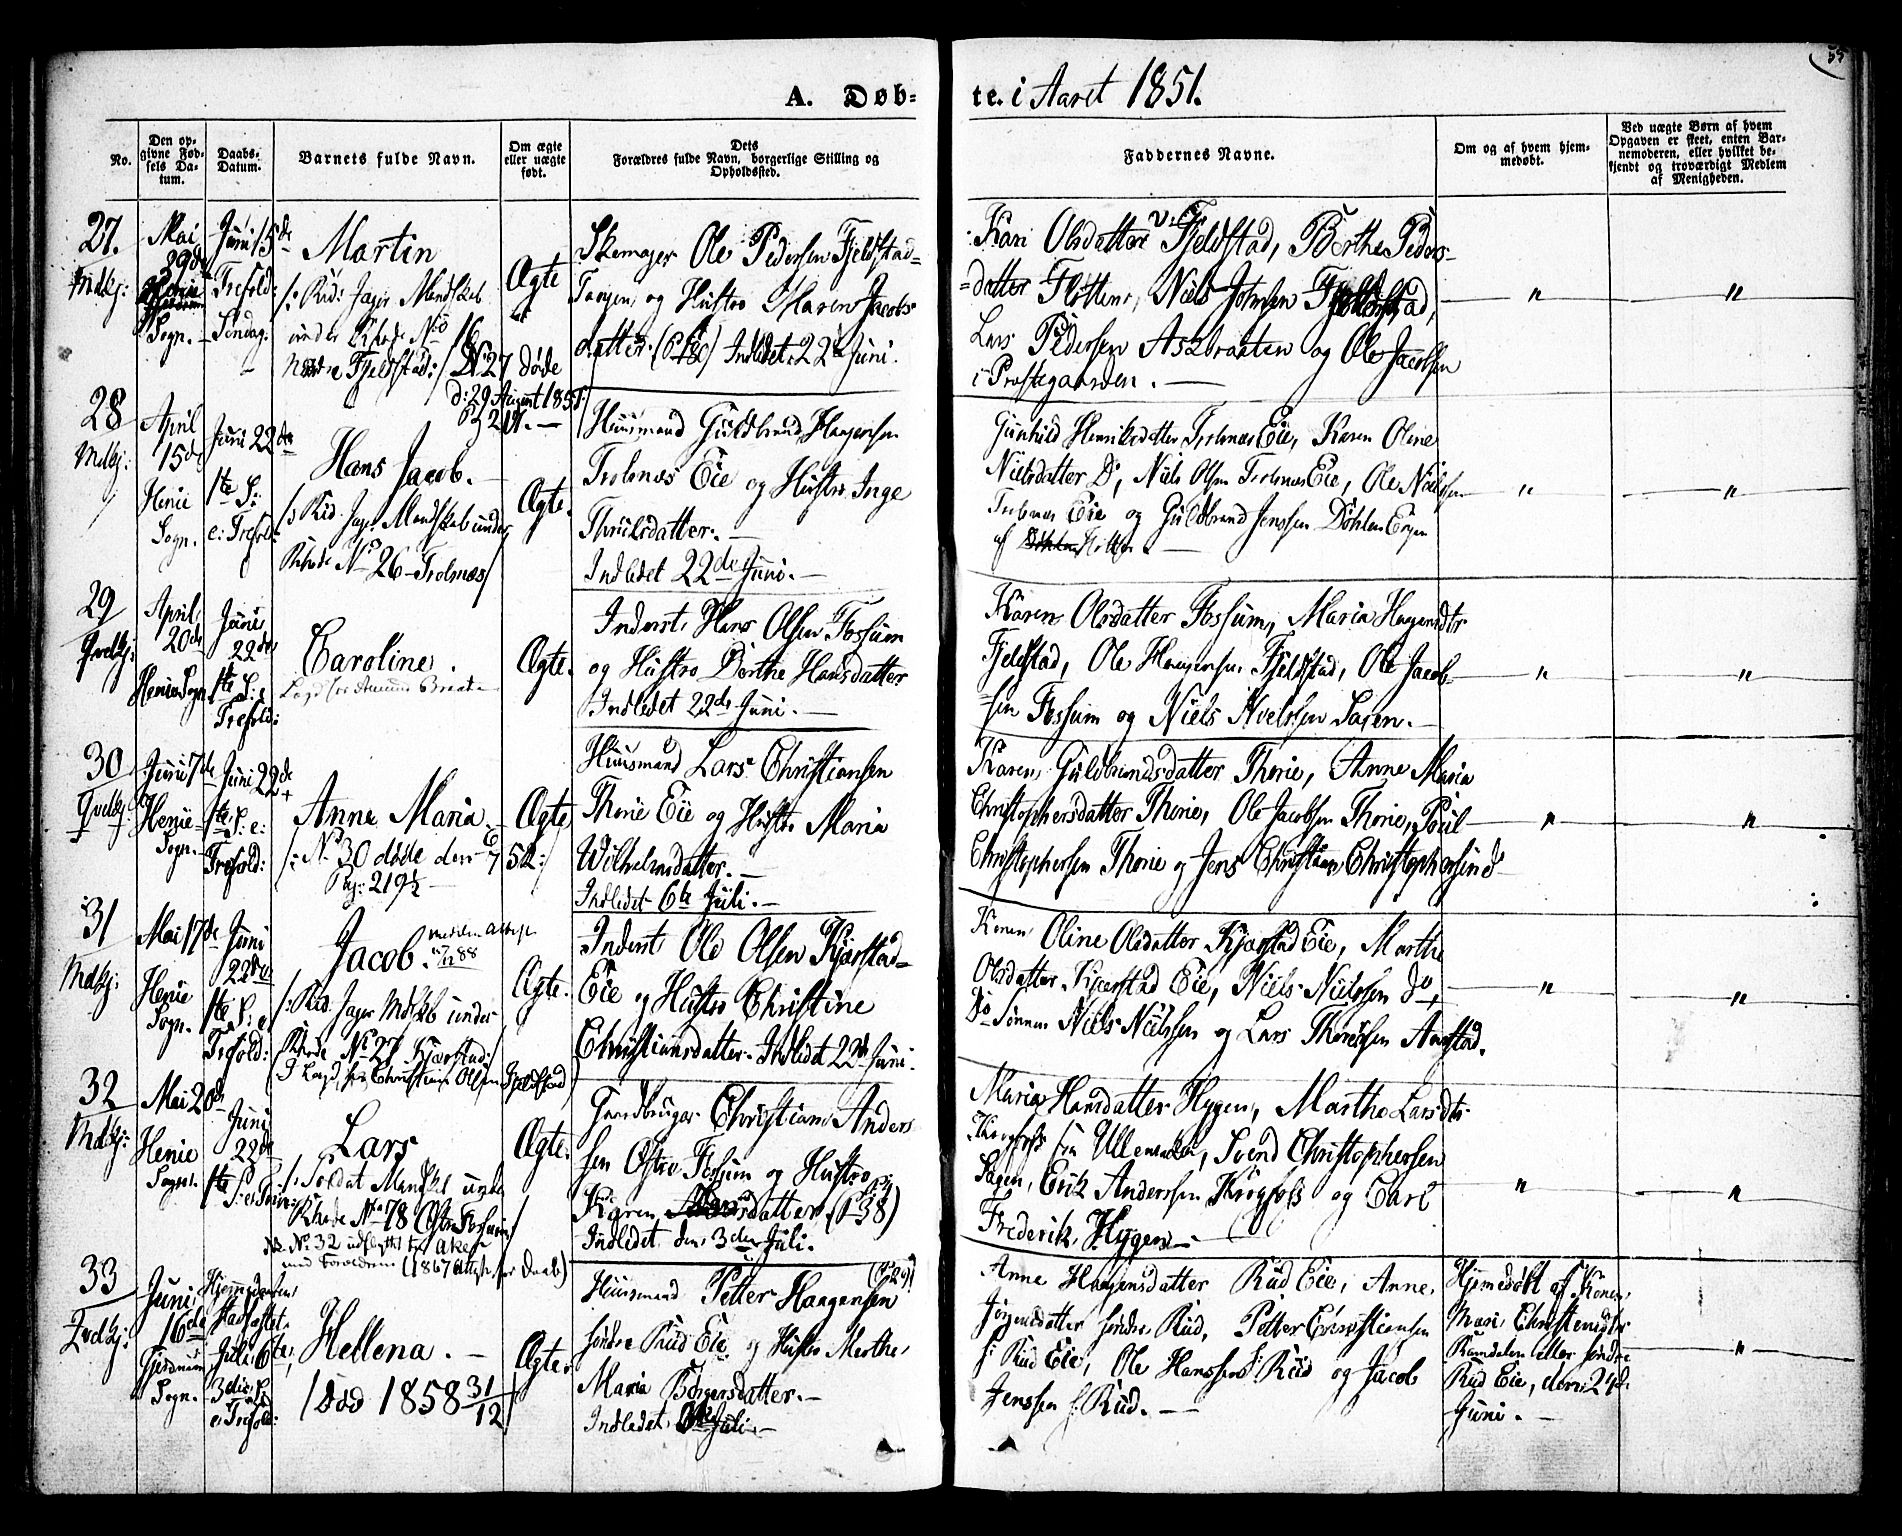 A. Døb-
te. i Aaret 1851.
No.
Den op-
givne Fød-
sels Da-
tum.
Daabs-
Datum.
Barnets fulde Navn.
Om ægte
eller uægte
født.
Dets
Forældres fulde Navn, borgerlige Stilling og
Opholdssted.
Faddernes Navne.
Om og af hvem hjem-
medøbt.
Ved uægte Børn af hvem
Opgaven er skeet, enten Bar-
nemoderen, eller hvilket be-
kjendt og troværdigt Medlem
af Menigheden.
27.
Mdkj:
Mai
29de
Sogn.
Juni 15de
Trefold:
Søndag.
Martin
/: Rid: Jager Mandskab
under Rhode No 16
nedre Fjeldstad:/ No 27 døde
d: 29 August 1851:
Ægte
Skomager Ole Pedersen Fjeldstad-
Tangen, og Hustro Maren Jacobs-
datter. Indledet 22de Juni.
Kari Olsdatter Fjeldstad, Berthe Peders-
datter Flotten, Niels Johnsen Fjeldstad,
Lars Pedersen Asbraaten og Ole Jacobsen
i Præstegaarden.
" "
28
Mdkj:
April
15de
Henie
Sogn.
Juni 22de
1ste S:
e: Trefold:
Hans Jacob.
/: Rid. Jager Mandskab under
Rhode No 26 Trolnæs/
Ægte.
Huusmand Guldbrand Haagensen
Trolnæs Eie og Hustro Inge
Thrulsdatter.
Indledet 22de Juni.
Gunhild Henriksdatter Trolnæs Eie, Karen Oline
Nielsdatter Do, Niels Olsen Trolnæs Eie, Ole Nielssen
Trolnæs Eie og Guldbrand Jenssen Døhlen Eugen
af
" "
29
Qvdkj:
April
20de
Henie Sogn.
Juni
22de
1ste S: e
Trefold:
Caroline.
Ægte.
Inderst Hans Olsen Fossum
og Hustro Dorthe Hansdatter
Indledet 22de Juni.
Karen Olsdatter Fossum, Maria Haagensdtr
Fjeldstad, Ole Haagensen Fjeldstad, Ole Jacob-
sen Fossum og Niels Nielssen Sagen.
" "
30
Qvdkj:
Juni 7de
Henie-
Sogn.
Juni 22de
1ste S: e:
Trefold:
Anne Maria.
/: No 30 døde den 6/7 52:/
Pag: 219½
Ægte
Huusmand Lars Christiansen
Thorie Eie og Hustro Maria
Wilhelmsdatter.
Indledet 6te Juli.
Karen Guldbrandsdatter Thorie, Anne Maria
Christophersdatter Thorie, Ole Jacobsen Thorie, Poul
Christophersen Thorie og Jens Christian Christophersen do
" "
31
Mdkj:
Mai 17de
Henie
Sogn.
Juni
22de
1ste S: e
Trefold:
Jacob.
/: Rid. Jager Mdskb under
Rhode No 27 Kjærstad:/
Ægte.
Inderst Ole Olsen Kjærstad-
Eie og Hustro Christine
Christiansdatter. Indledet 22de Juni.
Karen Oline Olsdatter Kjærstad Eie, Marthe
Olsdatter Kjærstad Eie, Niels Nielssen do,
do Sønnen Niels Nielssen og Lars Thoressen Aarstad.
" "
32
Mdkj:
Mai 20de
Henie
Sogn.
Juni
22de
Lars
/: Soldat Mandskb under
Rhode No 78 Østre Fossum/
No 32 udflyttet til Aker
med Forældrene (1867 Attest for Daab)
Ægte.
Gaardbruger Christian Anders-
sen Østre Fossum og Hustro
Karen
Indledet den 3de Juli.
Maria Hansdatter Hygen, Marthe Larsdtr
Krogfoss fra Ullensaker, Svend Christophersen
Sagen, Erik Anderssen Krogfoss og Carl
Frederik Hygen.
" "
33
Qvdkj:
Juni
16de
Gjerdrum
Sogn.
Hjemmedaaben
stadfæstet
Juli 6te
3die S:
e: Trefold:
Hellena.
/ død 1858 31/12/
Ægte
Huusmand Petter Haagensen
søndre Rud Eie og Hustro Marthe
Maria Børgersdatter.
Indledet Juli.
Anne Haagensdatter Rud Eie, Anne
Jørgensdatter søndre Rud, Petter Christiansen
s: Rud Eie, Ole Hanssen s: Rud og Jacob
Jenssen s: Rud.
Hjemedøbt af Konen
Mari Christensdtr
Ramdalen eller søndre
Rud Eie, den 24de
Juni.
"